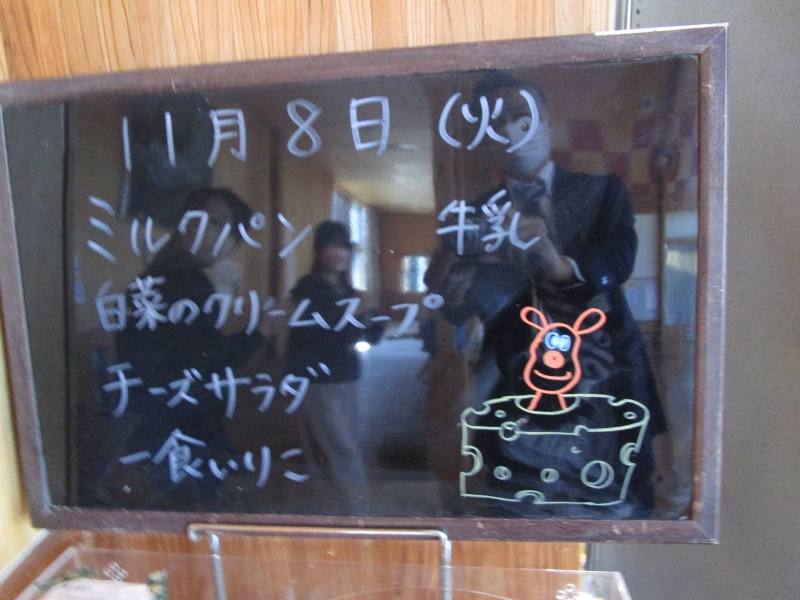 11月8日(火)
ミルクパン 牛乳
白菜のクリームスープ
チーズサラダ
一食いりこ